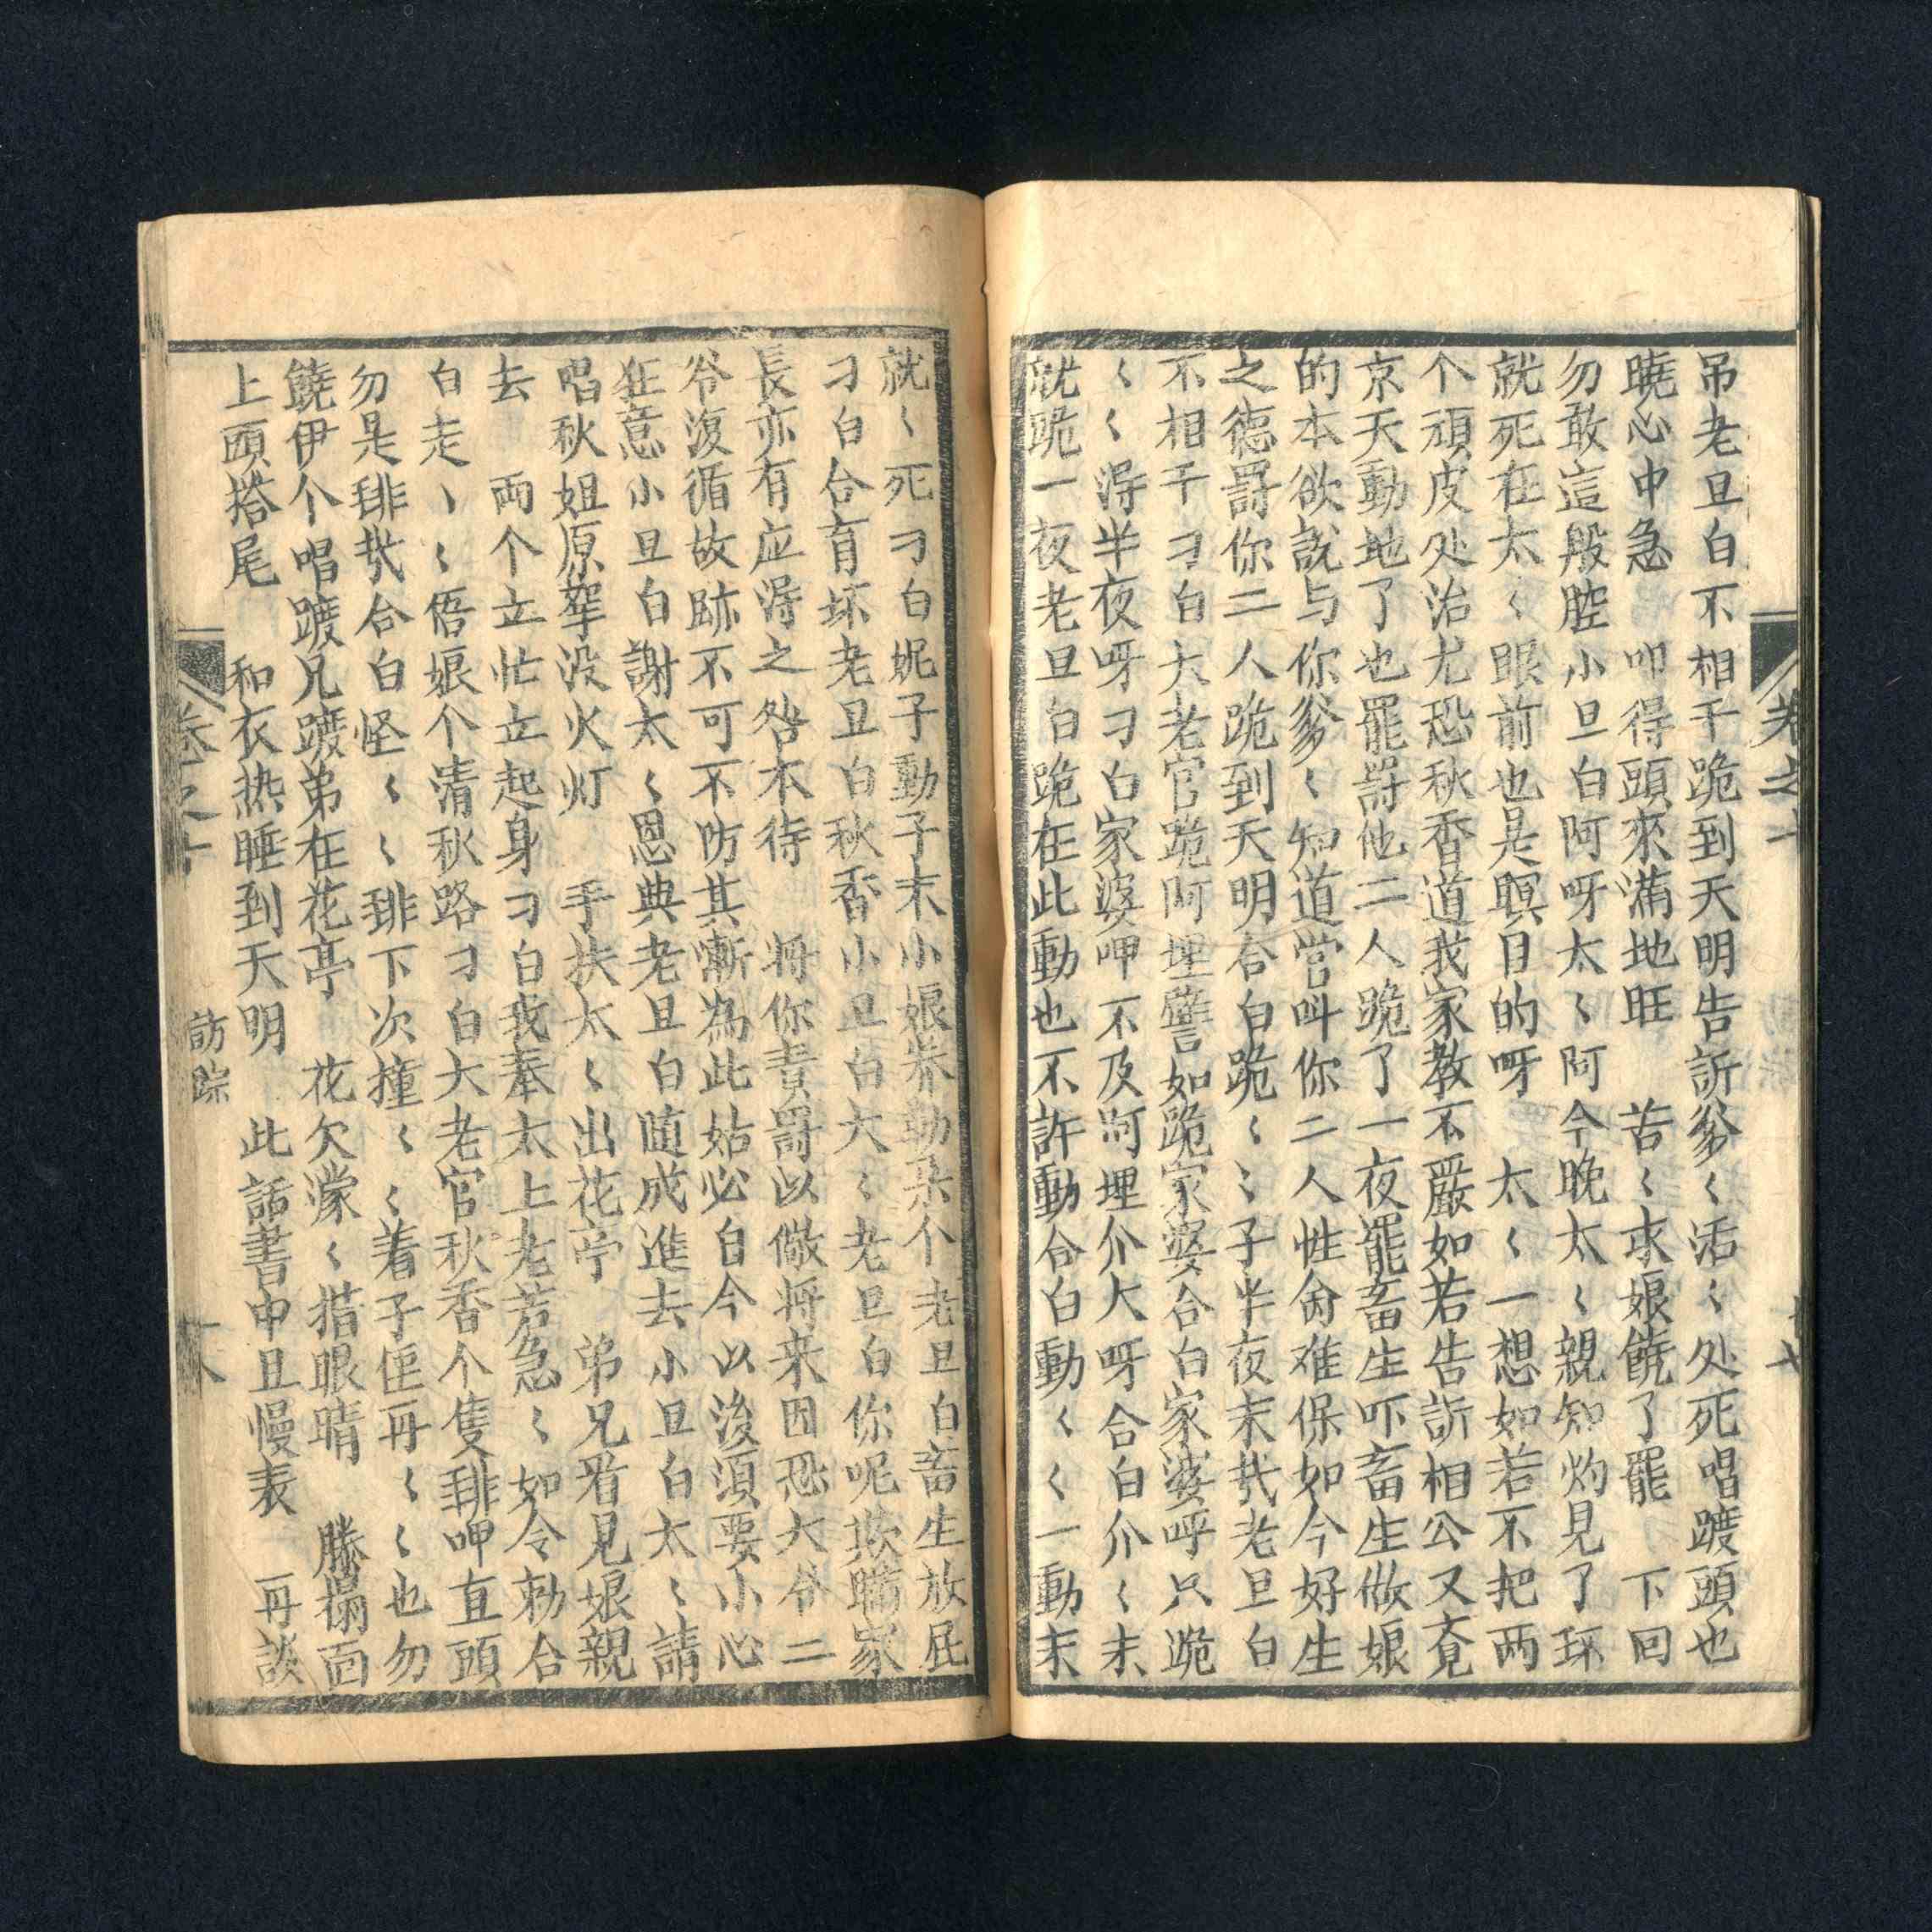 吊老旦白不相干跪到天明告訴爹〱活〱処死唱𨅬頭也
曉心中急　叩得頭來滿地旺　苦〱求娘饒了罷　下回
勿敢這般腔小旦白阿呀太〱阿今晚太〱親知灼見了琢
就死在太〱眼前也是瞑目的呀　太〱一想如若不把两
个頑皮処治尤恐秋香道我家教不嚴如若告訴相公又竟
京天動地了也罷罰他二人跪了一夜罷畜生吓畜生做娘
的本欲説与你爹〱知道當叫你二人性命难保如今好生
之德罰你二人跪到天明合白跪〱〱子半夜末㢤老旦白
不相干刁白大老官跪阿埋譬如跪家婆合白家婆呼只跪
〱〱淂半夜呀刁白家婆呷不及阿埋介大呀合白介〱末
就跪一夜老旦白跪在此動也不許動合白動〱〱一動末
就〱死刁白妮子動子末小娘养動朵个老旦白畜生放屁
刁白合盲坏老丑白秋香小旦白大〱老旦白你呢欺瞞家
長亦有应淂之咎本待　將你責罰以儆将来因恐大爷二
爷復循故跡不可不防其漸為此姑必自今以後須要小心
狂意小旦白謝太〱恩典老旦白随成進去小旦白太〱請
唱秋姐原拏没火灯　手扶太〱出花亭　弟兄看見娘親
去　两个立忙立起身刁白我奉太上老君急〱如令勅合
白走〱〱悟娘个清秋路刁白大老官秋香个隻𨈖呷直頭
勿是𨈖㢤合白怪〱〱𨈖下次撞〱〱着子侄再〱〱也勿
饒伊个唱𨅬兄𨅬弟在花亭　花欠濛〱揩眼晴　滕搨面
上頭搭尾　和衣热睡到天明　此話書中且慢表　再談
卷之十
訪踪
十八
卷之十
十七